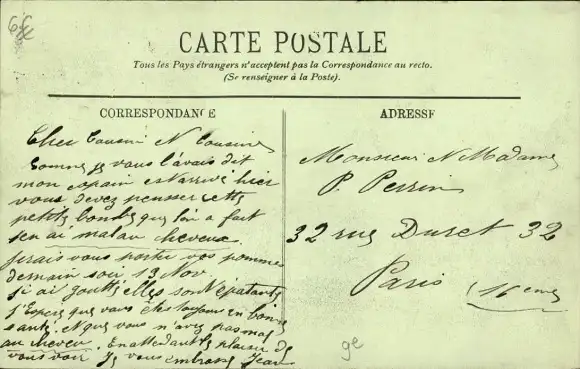 6€
CARTE POSTALE
Tous les Pays étrangers n'acceptent pas la Correspondance au recto.
(Se renseigner à la Poste).
CORRESPONDANCE
Cher Cousin N Cousine
Comme je vous l'avais dit
mon copain est arrivé hier
vous devez pensser cette
petite bombe que l'on a fait
j'en ai mal au cheveux.
Jirais vous porter vos pommes
demain soir 13 Nov.
ji ai goutté elles sont épatante
J'Espère que vous êtes toujours en bonne
santé. N que vous n'avez pas mal
au cheveu. En attendant le plaisir de
vous voir Je vous embrasse Jean
ADRESSE
Monsieur N Madame
P. Perrin
32 rue Duret 32
Paris
(16eme)
ge